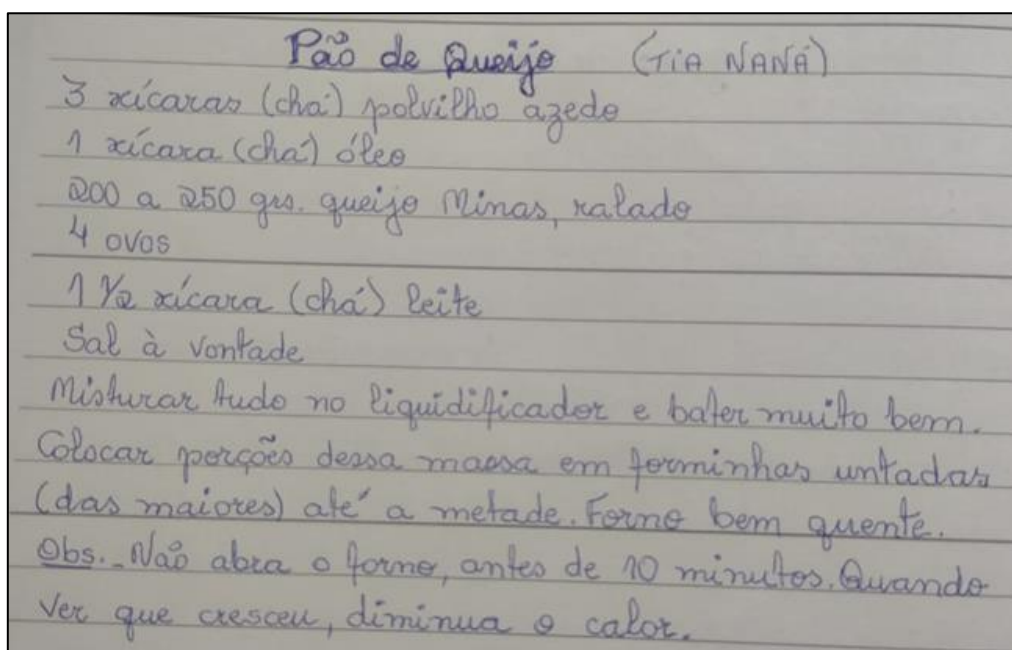 Pão de Queijo (TIA NANÁ)
3 xícaras (chá) polvilho azedo
1 xícara (chá) óleo
200 a 250 grs. queijo Minas, ralado
4 ovos
1 1/2 xícara (chá) leite
Sal à vontade
Misturar tudo no liquidificador e bater muito bem.
Colocar porções dessa massa em forminhas untadas
(das maiores) até a metade. Forno bem quente.
Obs. Não abra o forno, antes de 10 minutos. Quando
ver que cresceu, diminua o calor.